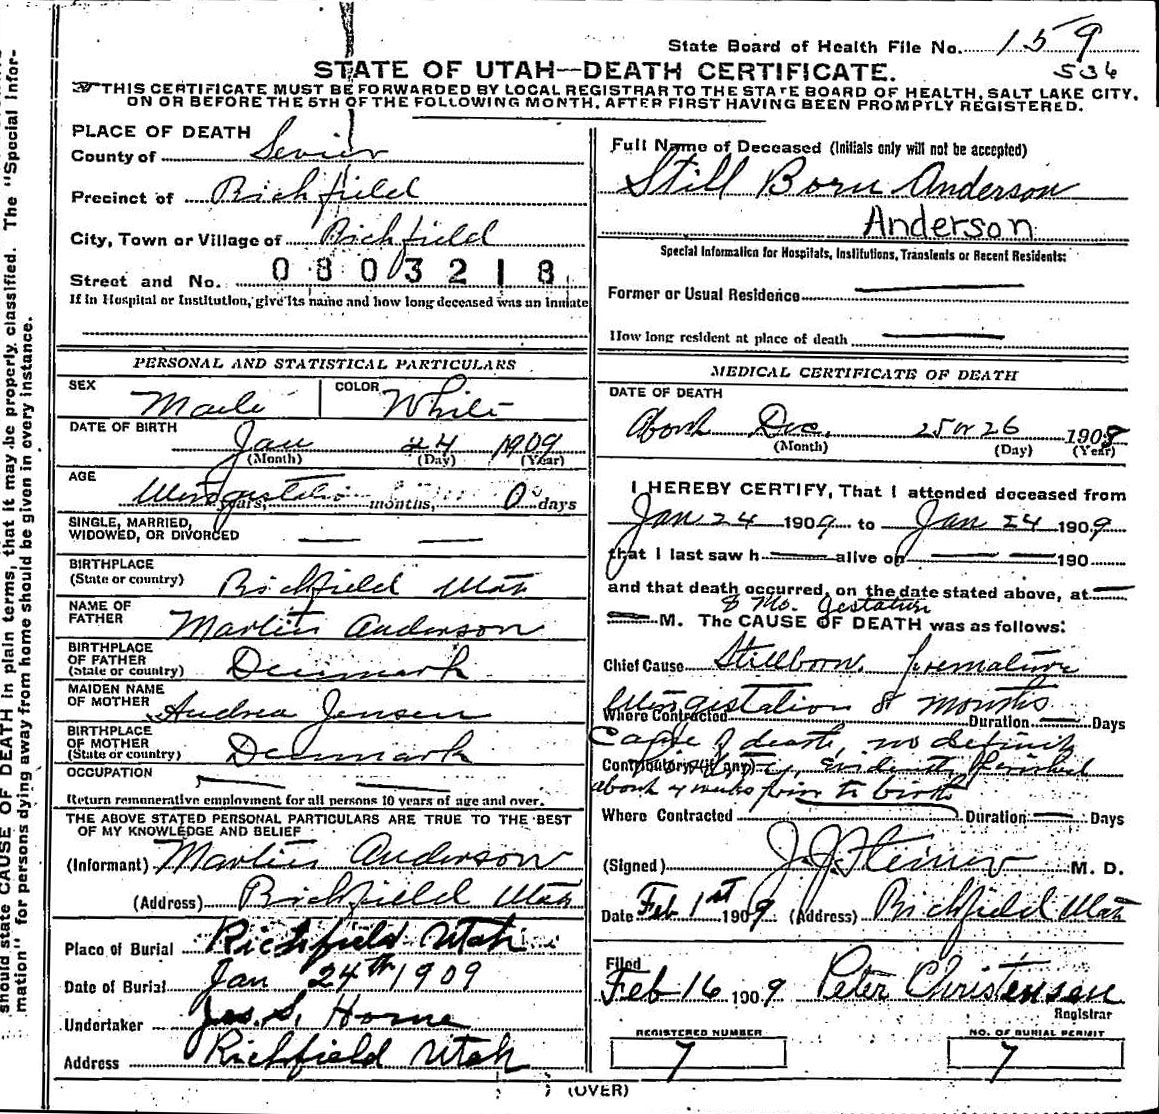 should state CAUSE OF DEATH in plain terms, that it may be properly classified. The "Special Infor-
mation" for persons dying away from home should be given in every instance.
State Board of Health File No. 159
536
STATE OF UTAH—DEATH CERTIFICATE.
THIS CERTIFICATE MUST BE FORWARDED BY LOCAL REGISTRAR TO THE STATE BOARD OF HEALTH, SALT LAKE CITY,
ON OR BEFORE THE 5TH OF THE FOLLOWING MONTH, AFTER FIRST HAVING BEEN PROMPTLY REGISTERED.
PLACE OF DEATH
County of Sevier
Precinct of Richfield
City, Town or Village of Richfield
Street and No. 0803218
If in Hospital or Institution, give its name and how long deceased was an inmate
PERSONAL AND STATISTICAL PARTICULARS
SEX Male COLOR White
DATE OF BIRTH
Jan 24 1909
(Month) (Day) (Year)
AGE
years, months, 0 days
SINGLE, MARRIED,
WIDOWED, OR DIVORCED
BIRTHPLACE
(State or country) Richfield Utah
NAME OF
FATHER Martin Anderson
BIRTHPLACE
OF FATHER
(State or country) Denmark
MAIDEN NAME
OF MOTHER Andrea Jensen
BIRTHPLACE
OF MOTHER
(State or country) Denmark
OCCUPATION
Return remunerative employment for all persons 10 years of age and over.
THE ABOVE STATED PERSONAL PARTICULARS ARE TRUE TO THE BEST
OF MY KNOWLEDGE AND BELIEF
(Informant) Martin Anderson
(Address) Richfield Utah
Place of Burial Richfield Utah
Date of Burial Jan 24th 1909
Undertaker Jas. S. Horne
Address Richfield Utah
Full Name of Deceased (Initials only will not be accepted)
Still Born Anderson
Anderson
Special Information for Hospitals, Institutions, Transients or Recent Residents:
Former or Usual Residence
How long resident at place of death
MEDICAL CERTIFICATE OF DEATH
DATE OF DEATH
About Dec. 25 or 26 1908
(Month) (Day) (Year)
I HEREBY CERTIFY, That I attended deceased from
Jan 24 1909 to Jan 24 1909
that I last saw h alive on 190
and that death occurred, on the date stated above, at
8 Mo. Gestation
M. The CAUSE OF DEATH was as follows:
Chief Cause Stillborn. premature
gestation 8 months
Where Contracted Duration Days
Cause of death, no definite
Contributory (if any) evidently perished
about 4 weeks prior to birth
Where Contracted Duration Days
(Signed) J. J. Steiner M. D.
Date Feb 1st 1909 (Address) Richfield Utah
Filed
Feb 16 1909 Peter Christensen
Registrar
REGISTERED NUMBER
7
NO. OF BURIAL PERMIT
7
(OVER)